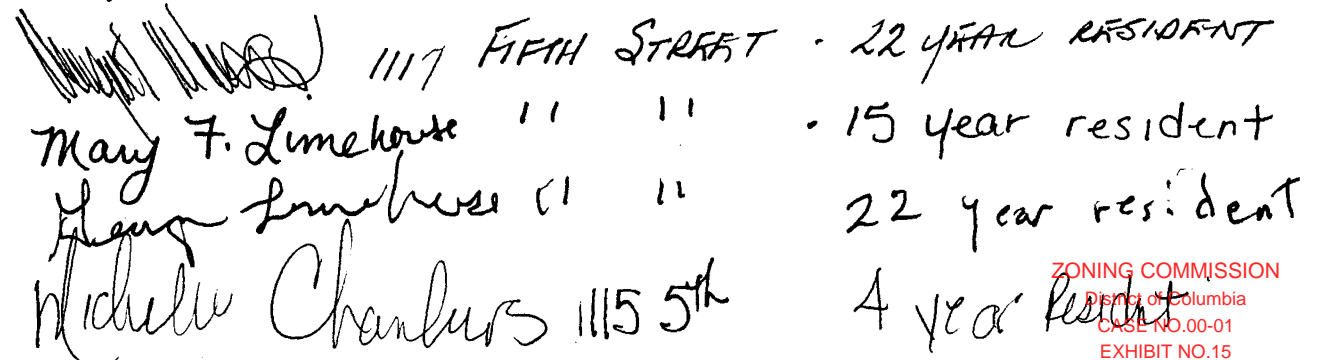 1117 FIFTH STREET · 22 YEAR RESIDENT
Mary F. Limehouse " " · 15 year resident
Limehouse " " 22 year resident
Michelle Chambers 1115 5th 4 year Resident
ZONING COMMISSION
District of Columbia
CASE NO.00-01
EXHIBIT NO.15